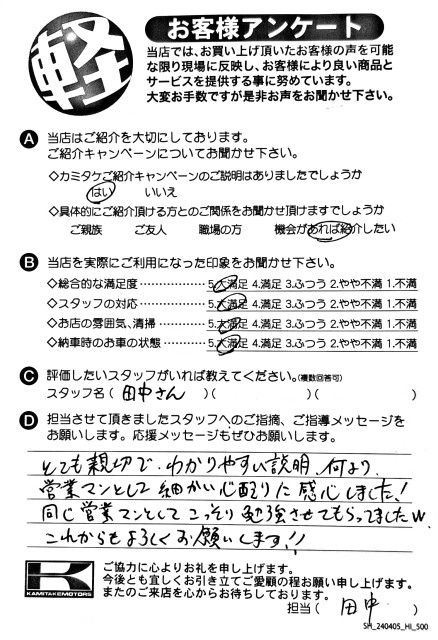 軽
お客様アンケート
当店では、お買い上げ頂いたお客様の声を可能
な限り現場に反映し、お客様により良い商品と
サービスを提供する事に努めています。
大変お手数ですが是非お声をお聞かせ下さい。
A 当店はご紹介を大切にしております。
ご紹介キャンペーンについてお聞かせ下さい。
◇カミタケご紹介キャンペーンのご説明はありましたでしょうか
はい いいえ
◇具体的にご紹介頂ける方とのご関係をお聞かせ頂けますでしょうか
ご親族 ご友人 職場の方 機会があれば紹介したい
B 当店を実際にご利用になった印象をお聞かせ下さい。
◇総合的な満足度………… 5.大満足 4.満足 3.ふつう 2.やや不満 1.不満
◇スタッフの対応………… 5.大満足 4.満足 3.ふつう 2.やや不満 1.不満
◇お店の雰囲気、清掃……… 5.大満足 4.満足 3.ふつう 2.やや不満 1.不満
◇納車時のお車の状態……… 5.大満足 4.満足 3.ふつう 2.やや不満 1.不満
C 評価したいスタッフがいれば教えてください。(複数回答可)
スタッフ名( 田中さん )( )( )
D 担当させて頂きましたスタッフへのご指摘、ご指導メッセージを
お願いします。応援メッセージもぜひお願いします。
とても親切で、わかりやすい説明、何より、
営業マンとして細かい心配りに感心しました!
同じ営業マンとしてこっそり勉強させてもらってましたw
これからもよろしくお願いします!!
K
KAMITAKEMOTORS
ご協力に心よりお礼を申し上げます。
今後とも宜しくお引き立てご愛顧の程お願い申し上げます。
またのご来店を心からお待ちしております。
担当( 田中 )
SH_240405_HI_500